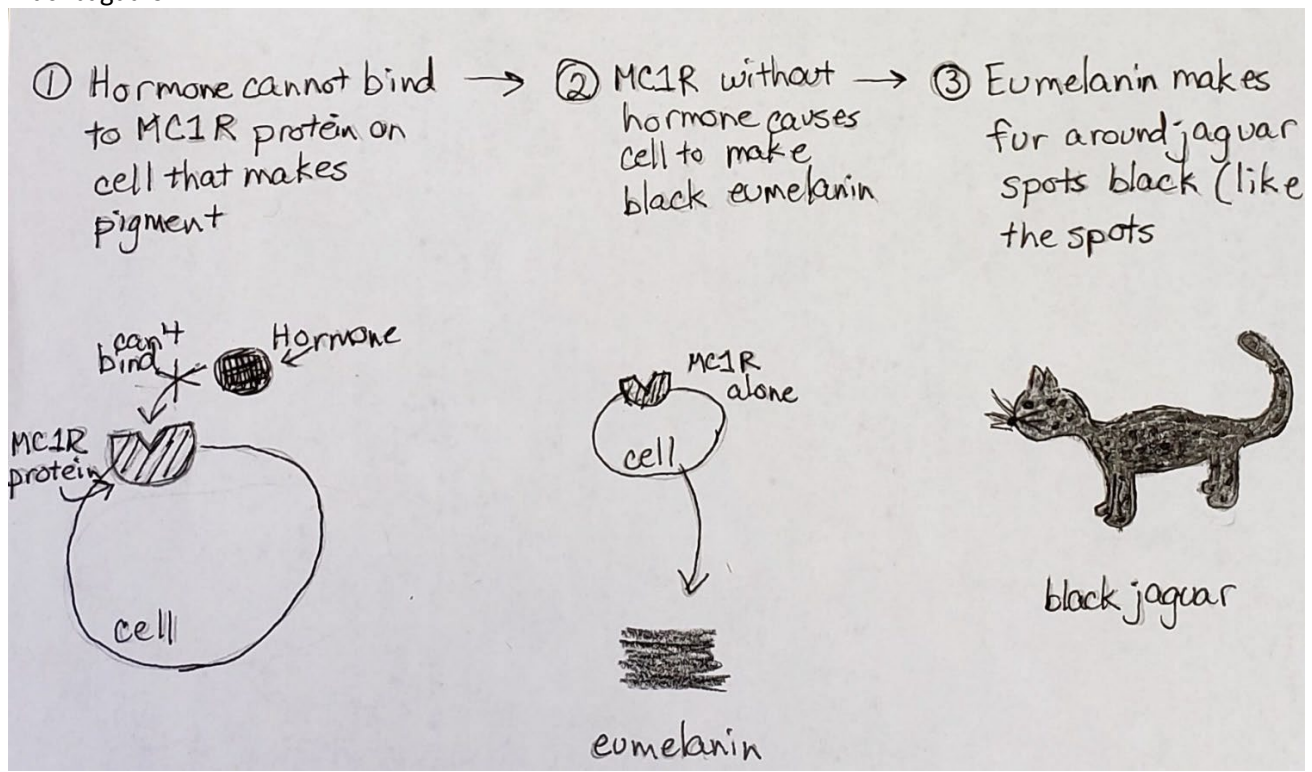 ① Hormone cannot bind
to MC1R protein on
cell that makes
pigment
→ ② MC1R without
hormone causes
cell to make
black eumelanin
→ ③ Eumelanin makes
fur around jaguar
spots black (like
the spots
can't
bind
Hormone
MC1R
protein
cell
MC1R
alone
cell
eumelanin
black jaguar